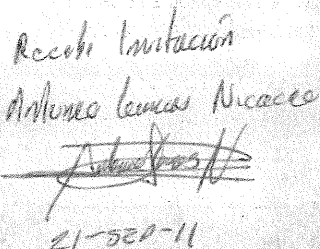 Recibi Invitación
Antonio Lemus Nicacio
21-SEP-11